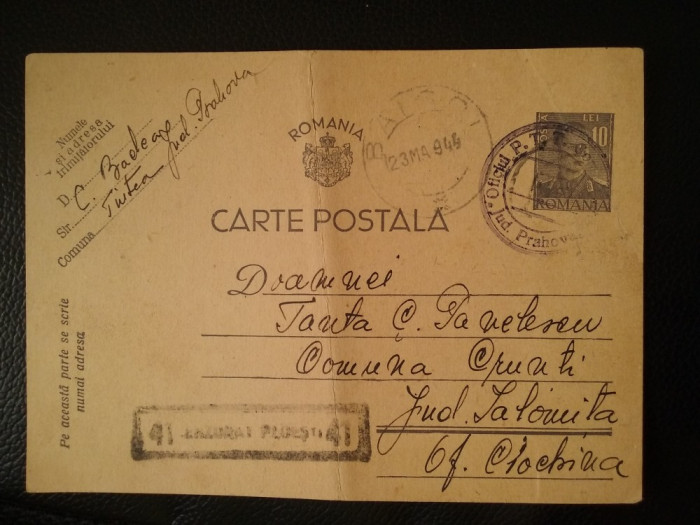 Numele
și adresa
trimițătorului
D. C. Badea
Str. Țintea Jud. Prahova
Comuna
ROMANIA
CARTE POSTALA
23 MA 945
LEI
10
ROMANIA
Oficiul P. T. T.
Jud. Prahova
Doamnei
Tanta C. Pavelescu
Comuna Crunti
Jud. Ialomita
Of. Ciochina
Pe această parte se scrie
numai adresa
41 CENZURAT PLOEȘTI 41